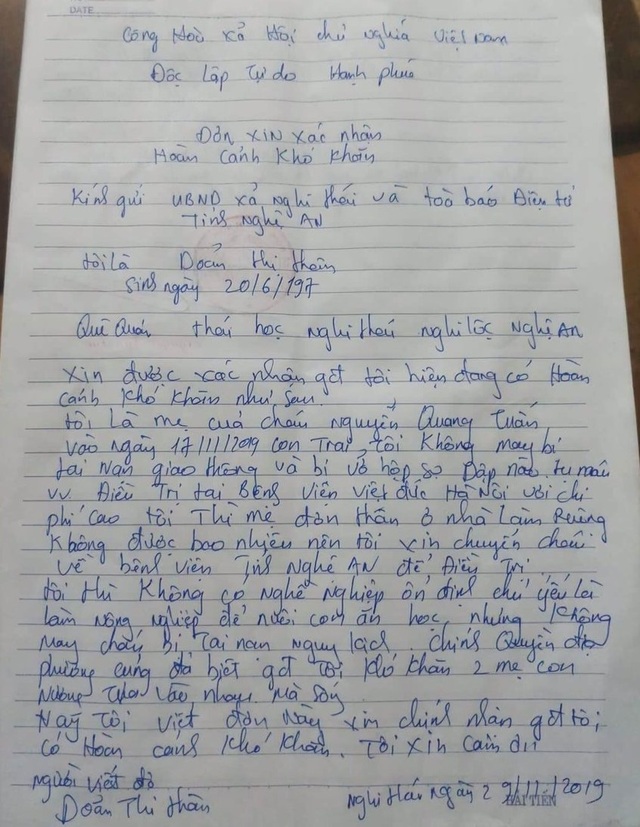 DATE
Cộng Hoà xả Hội chủ nghiã Việt Nam
Độc Lập Tự do Hạnh phúc
Đơn XIN xác nhận
Hoàn cảnh khó khăn
Kính gửi UBND xả nghi thái và toà báo Điện tử
Tỉnh nghệ AN
tôi là Doản thị thân
sinh ngày 20/6/197
Quê Quán thái học nghi thái nghi lộc nghệ AN
xin được xác nhận gđt tôi hiện đang có Hoàn
cảnh khó khăn như sau
tôi là mẹ cuả cháu nguyễn Quang Tuấn
vào ngày 17/11/2019 con Trai tôi không may bị
tai nạn giao thông và bị vở hộp sọ Dập nảo tụ máu
vv Điều Trị tại Bệnh viện việt đức Hà Nội với chi
phí cao tôi Thì mẹ đơn thân ở nhà làm Ruộng
không được bao nhiêu nên tôi xin chuyển cháu
về bệnh viện Tỉnh Nghệ AN để Điều Trị
tôi thì không có nghề nghiệp ổn định chủ yếu là
làm nông nghiệp để nuôi con ăn học nhưng không
may cháu bị Tai nạn nguy kịch. chính Quyền địa
phương cung đả biết gđt tôi khó khăn 2 mẹ con
Nương tựa vào nhau mà sống
Nay Tôi viết đơn này xin chính nhận gđt tôi
có Hoàn cảnh khó khăn. Tôi xin cảm ơn
người viết đơ
Doản Thị thân
nghi thái ngày 29/11/2019
HẢI TIẾN